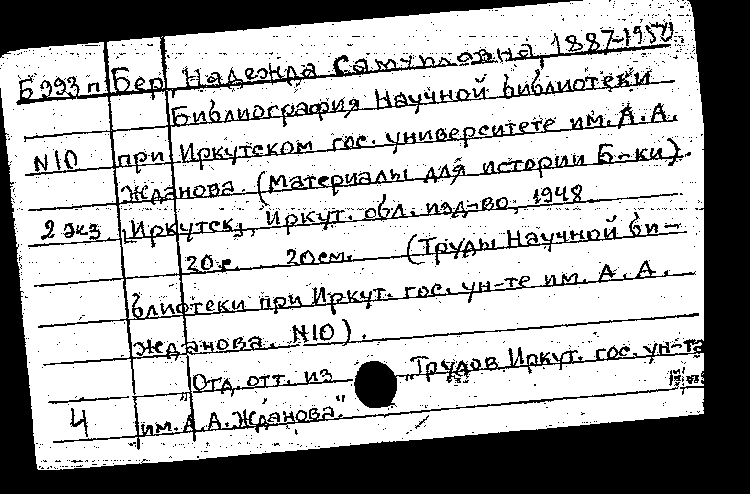 Б993п Бер, Надежда Самуиловна, 1887-1950
Библиография Научной библиотеки
N10 при Иркутском гос. университете им. А.А.
Жданова. (Материалы для истории Б-ки).
2 экз. Иркутск, Иркут. обл. изд-во, 1948.
20с. 20см. (Труды Научной би-
блиотеки при Иркут. гос. ун-те им. А. А.
Жданова. N10).
"Отд. отт. из "Трудов Иркут. гос. ун-та
4 им. А. А. Жданова."